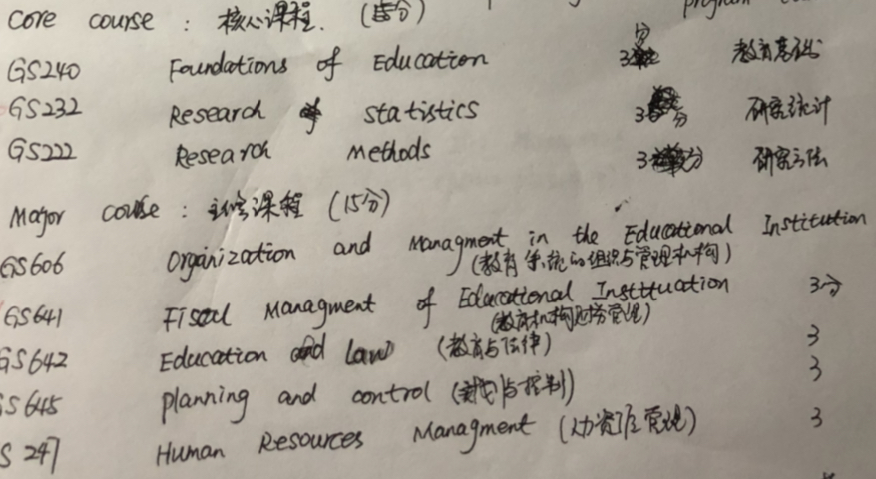 Core course : 核心课程. (15分)
GS240 Foundations of Education 3分 教育基础
GS232 Research statistics 3分 研究统计
GS222 Research Methods 3分 研究方法
Major course : 主修课程 (15分)
GS606 Organization and Managment in the Educational Institution
(教育系统的组织与管理机构)
GS641 Fiscal Managment of Educational Instituation 3分
(教育机构财务管理)
GS642 Education and law (教育与法律) 3
S645 planning and control (计划与控制) 3
S 247 Human Resources Managment (人力资源管理) 3